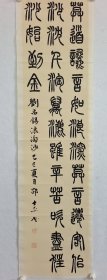 莫道讒言如浪深莫言遷客似
沙沈千淘萬漉雖辛苦吹盡狂
沙始到金 劉禹錫浪淘沙 夏月